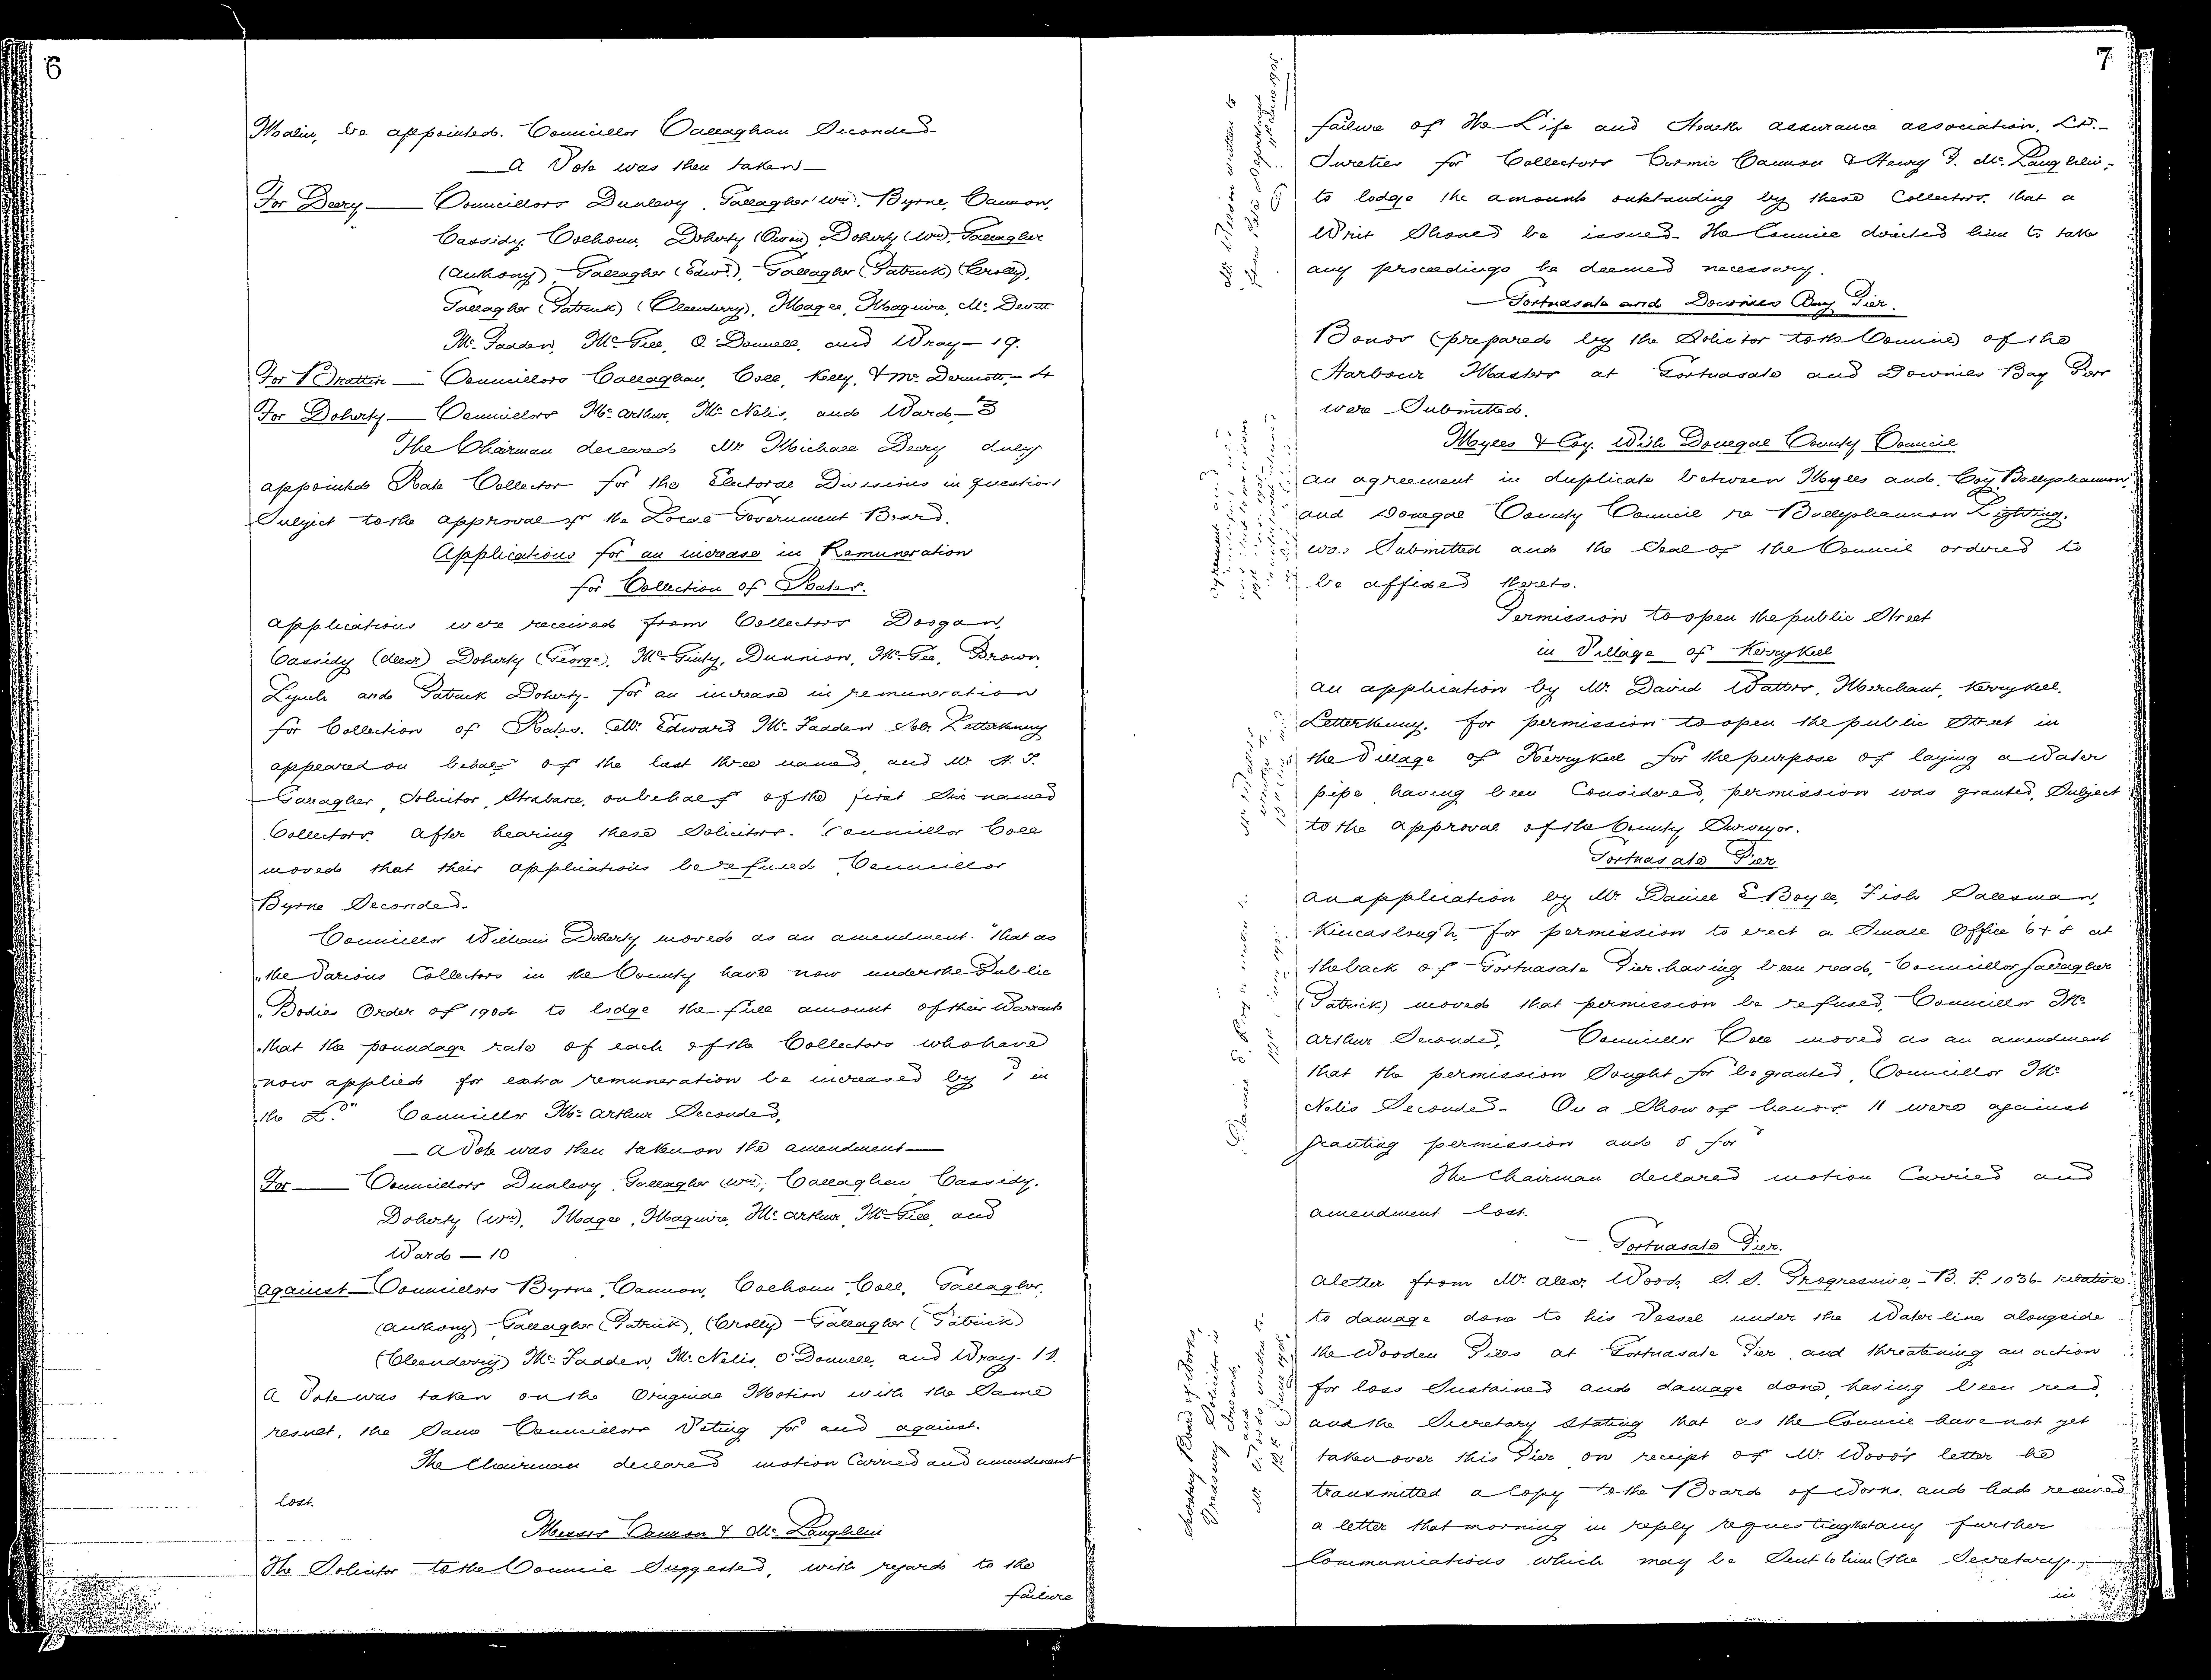 6
Malin, be appointed. Councillor Callaghan Seconded
— A Vote was then taken —
For Deery — Councillors Dunlevy, Gallagher Wm. Byrne, Cannon,
Cassidy, Colhoun, Doherty (Owen), Doherty (Wm), Gallagher
(Anthony) Gallagher (Edwd.), Gallagher (Patrick) (Crolly),
Gallagher (Patrick) (Cleenderry), Magee, Maguire, Mc. Devitt
Mc. Fadden, Mc Gill, O'Donnell, and Wray — 19.
For Bratten — Councillors Callaghan, Coll, Kelly, & Mc. Dermott, — 4
For Doherty — Councillors Mc. Arthur, Mc Nelis, and Ward — 3
The Chairman declared Mr. Michael Deery duly
appointed Rate Collector for the Electoral Divisions in question
Subject to the approval of the Local Government Board.
Applications for an increase in Remuneration
for Collection of Rates.
Applications were received from Collectors Doogan,
Cassidy (decr) Doherty (George), Mc Ginty, Dunnion, Mc. Gee, Brown,
Lynch and Patrick Doherty. for an increase in remuneration
for Collection of Rates. Mr. Edward Mc. Fadden Solr. Letterkenny
appeared on behalf of the last three named, and Mr
Gallagher, Solicitor, Strabane, on behalf of the first Six named
Collectors. After hearing these Solicitors. Councillor Coll
moved that their applications be refused, Councillor
Byrne Seconded.
Councillor William Doherty moved as an amendment. "That as
"the Various Collectors in the County have now under the Public
"Bodies Order of 1904 to lodge the full amount of their Warrants
"that the poundage rate of each of the Collectors who have
"now applied for extra remuneration be increased by in
the £." Councillor Mc. Arthur Seconded,
— A Vote was then taken on the amendment —
For — Councillors Dunlevy, Gallagher (Wm), Callaghan Cassidy.
Doherty (Wm), Magee, Maguire, Mc. Arthur, Mc Gill, and
Ward — 10
Against — Councillors Byrne, Cannon, Colhoun, Coll, Gallagher,
(Anthony) Gallagher (Patrick), (Crolly) Gallagher (Patrick)
(Cleenderry) Mc. Fadden, Mc. Nelis, O'Donnell, and Wray. 11.
A Vote was taken on the Original Motion with the Same
result, the Same Councillors Voting for and against.
The Chairman declared motion Carried and amendment
lost.
Messrs Cannon & Mc. Laughlin
The Solicitor to the Council Suggested, with regard to the
failure
7.
failure of the Life and Health Assurance Association, Ld.
Sureties for Collectors Cormic Cannon & Henry Mc. Laughlin,
to lodge the amounts outstanding by these Collectors. that a
Writ Should be issued. The Council directed him to take
any proceedings he deemed necessary.
Gortnasate and Downies Bay Pier.
Bonds (prepared by the Solicitor to the Council) of the
Harbour Masters at Gortnasate and Downies Bay Piers
were Submitted.
Myles & Coy. With Donegal County Council
An agreement in duplicate between Myles and Coy. Ballyshannon,
and Donegal County Council re Ballyshannon Lighting.
was Submitted and the Seal of the Council ordered to
be affixed thereto.
Permission to open the public Street
in Village of Kerrykeel
An application by Mr. David Watters, Merchant, Kerrykeel.
Letterkenny. for permission to open the public Street in
the Village of Kerrykeel for the purpose of laying a Water
pipe, having been Considered, permission was granted, Subject
to the approval of the County Surveyor.
Gortnasate Pier
An application by Mr. Daniel E Boyle, Fish Salesman,
Kincaslough for permission to erect a Small Office 6 + 8 at
the back of Gortnasate Pier having been read, Councillor Gallagher
(Patrick) moved that permission be refused, Councillor Mc
Arthur Seconded, Councillor Coll moved as an amendment
that the permission Sought for be granted, Councillor Mc
Nelis Seconded. On a Show of hands 11 were against
granting permission and 5 for
The Chairman declared motion Carried and
amendment lost.
Gortnasate Pier.
A letter from Mr. Alex. Wood, S. S. Progressive, B. F. 1036. relative
to damage done to his Vessel under the Water line alongside
the Wooden Piles at Gortnasate Pier, and threatening an action
for loss Sustained and damage done, having been read,
and the Secretary Stating that as the Council have not yet
taken over this Pier, on receipt of Mr. Wood's letter he
transmitted a Copy to the Board of Works. and had received
a letter that morning in reply requesting that any further
Communications which may be Sent to him (the Secretary),
in